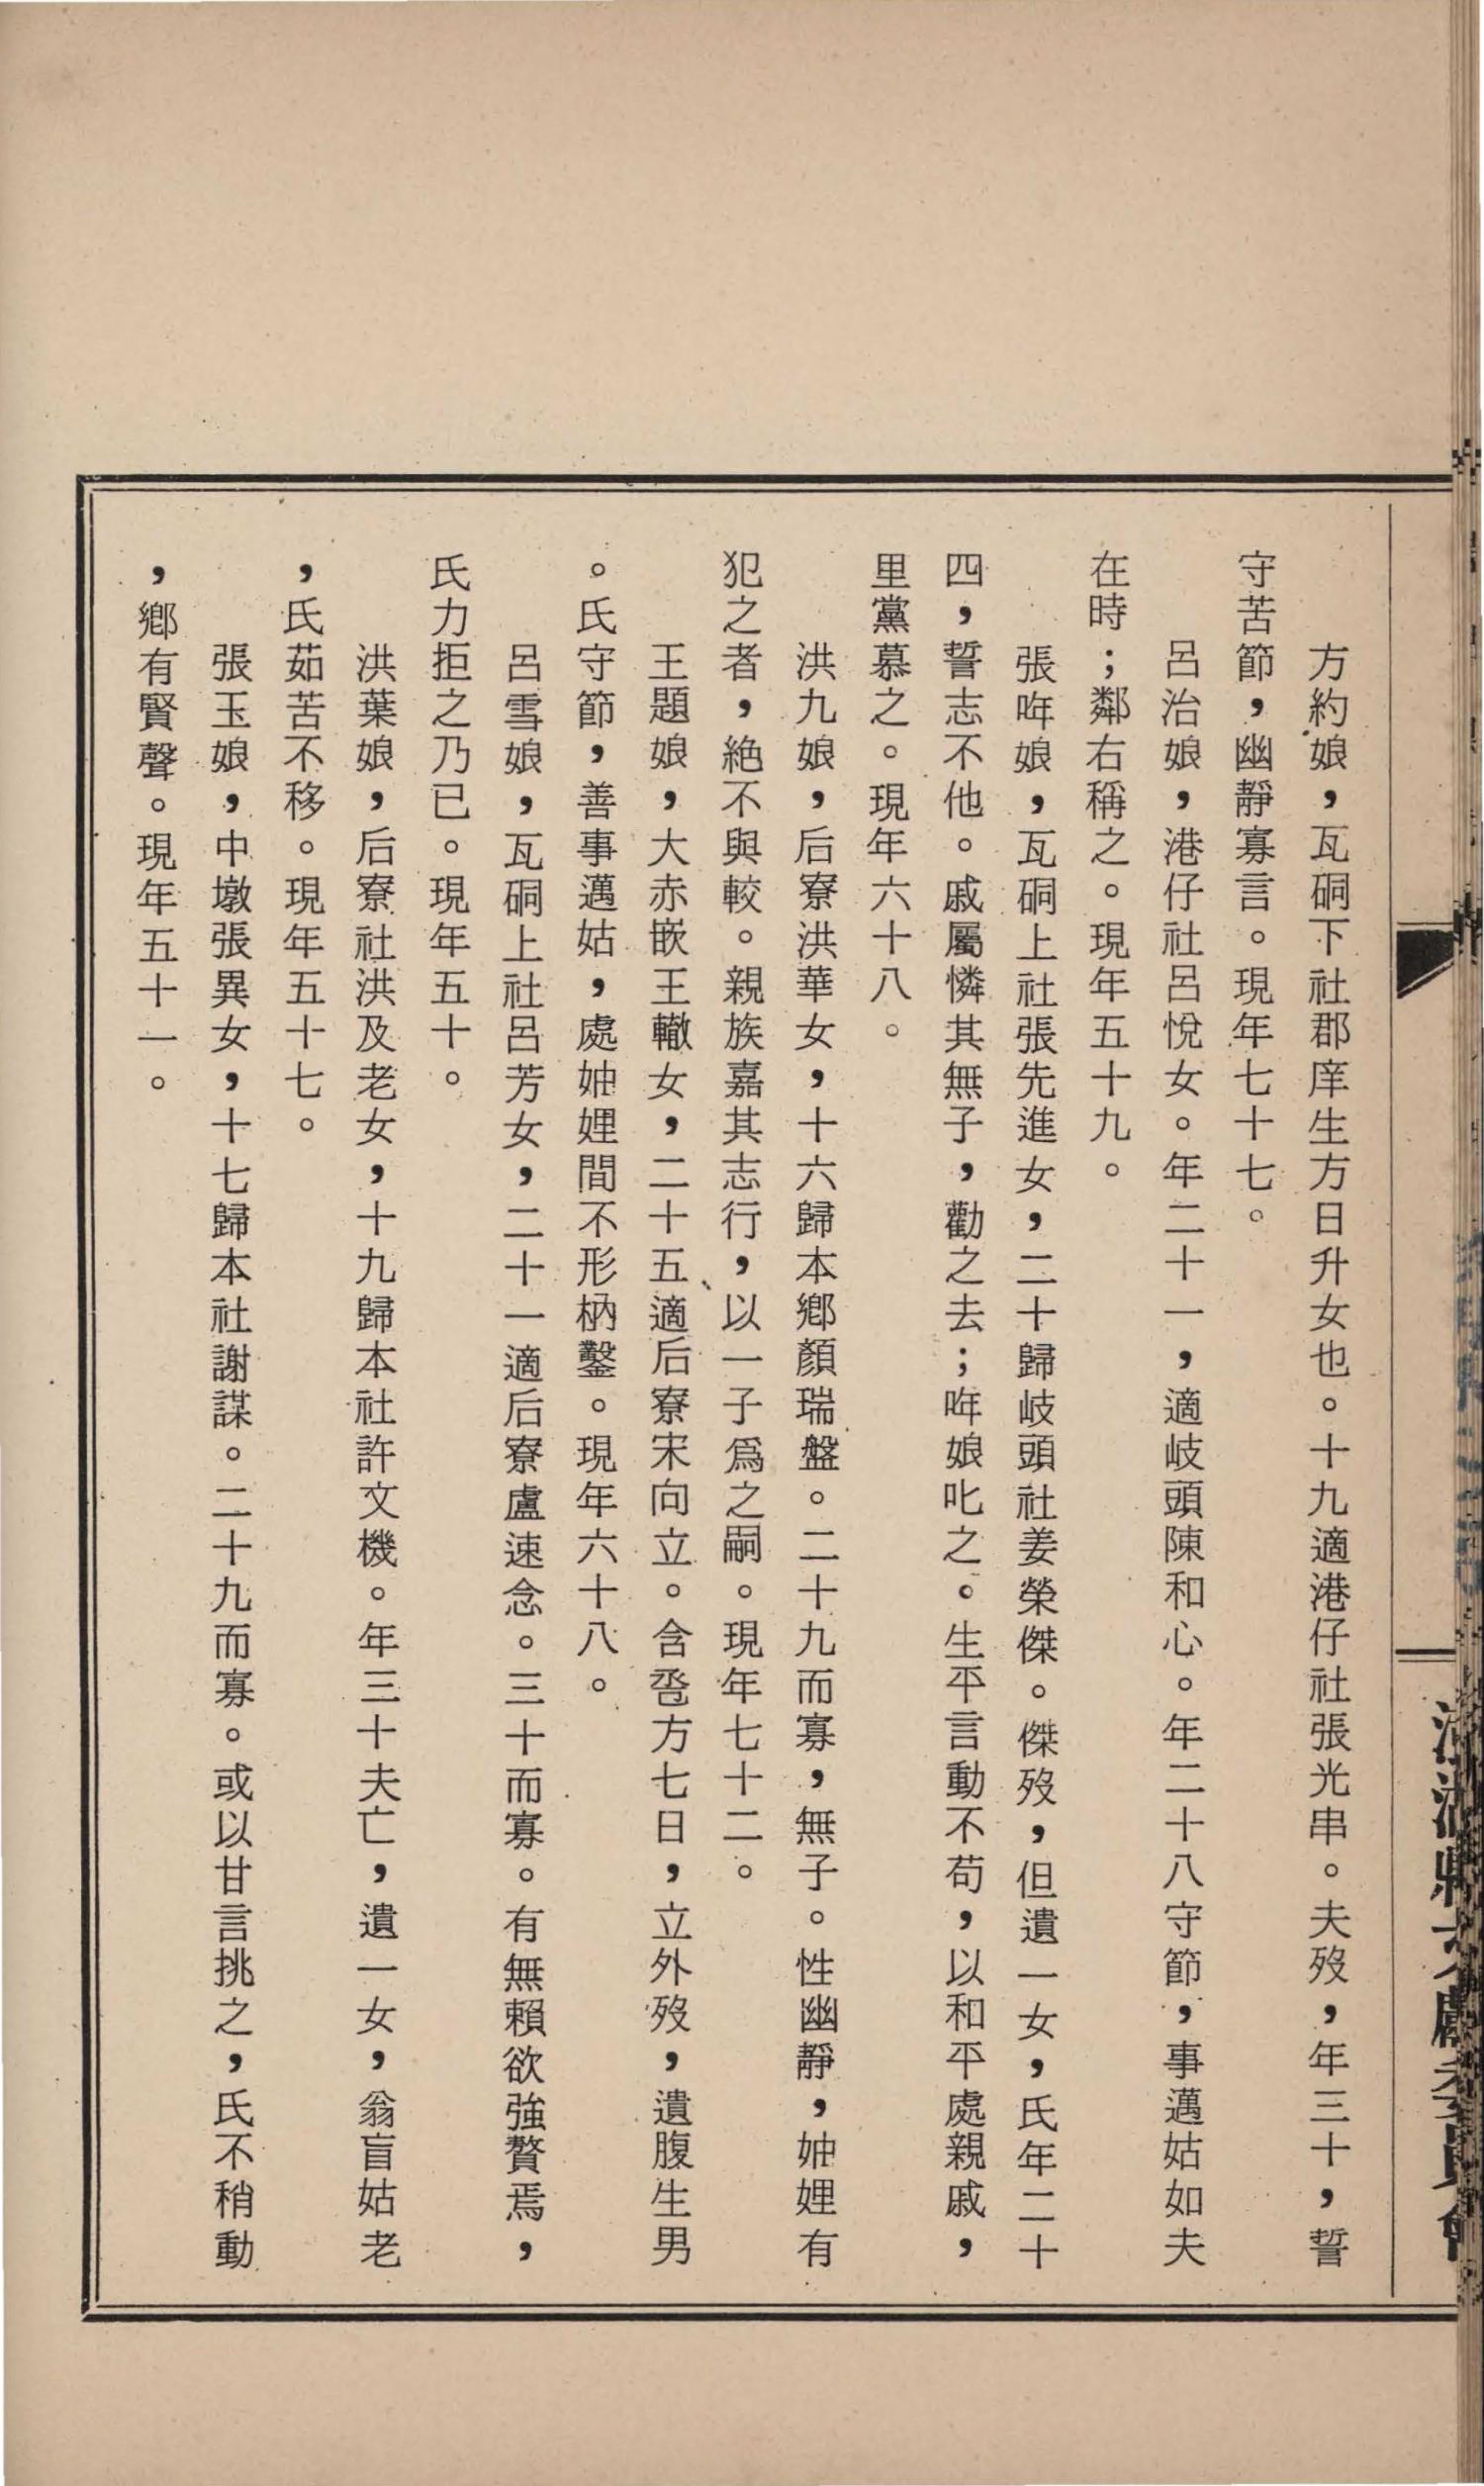 方約娘，瓦硐下社郡庠生方日升女也。十九適港仔社張光串。夫歿，年三十，誓
守苦節，幽靜寡言。現年七十七。
呂治娘，港仔社呂悅女。年二十一，適岐頭陳和心。年二十八守節，事邁姑如夫
在時；鄰右稱之。現年五十九。
張哖娘，瓦硐上社張先進女，二十歸岐頭社姜榮傑。傑歿，但遺一女，氏年二十
四，誓志不他。戚屬憐其無子，勸之去；哖娘叱之。生平言動不苟，以和平處親戚，
里黨慕之。現年六十八。
洪九娘，后寮洪華女，十六歸本鄉顏瑞盤。二十九而寡，無子。性幽靜，妯娌有
犯之者，絕不與較。親族嘉其志行，以一子爲之嗣。現年七十二。
王題娘，大赤嵌王轍女，二十五適后寮宋向立。含卺方七日，立外歿，遺腹生男
。氏守節，善事邁姑，處妯娌間不形枘鑿。現年六十八。
呂雪娘，瓦硐上社呂芳女，二十一適后寮盧速念。三十而寡。有無賴欲強贅焉，
氏力拒之乃已。現年五十。
洪葉娘，后寮社洪及老女，十九歸本社許文機。年三十夫亡，遺一女，翁盲姑老
，氏茹苦不移。現年五十七。
張玉娘，中墩張異女，十七歸本社謝謀。二十九而寡。或以甘言挑之，氏不稍動
，鄉有賢聲。現年五十一。